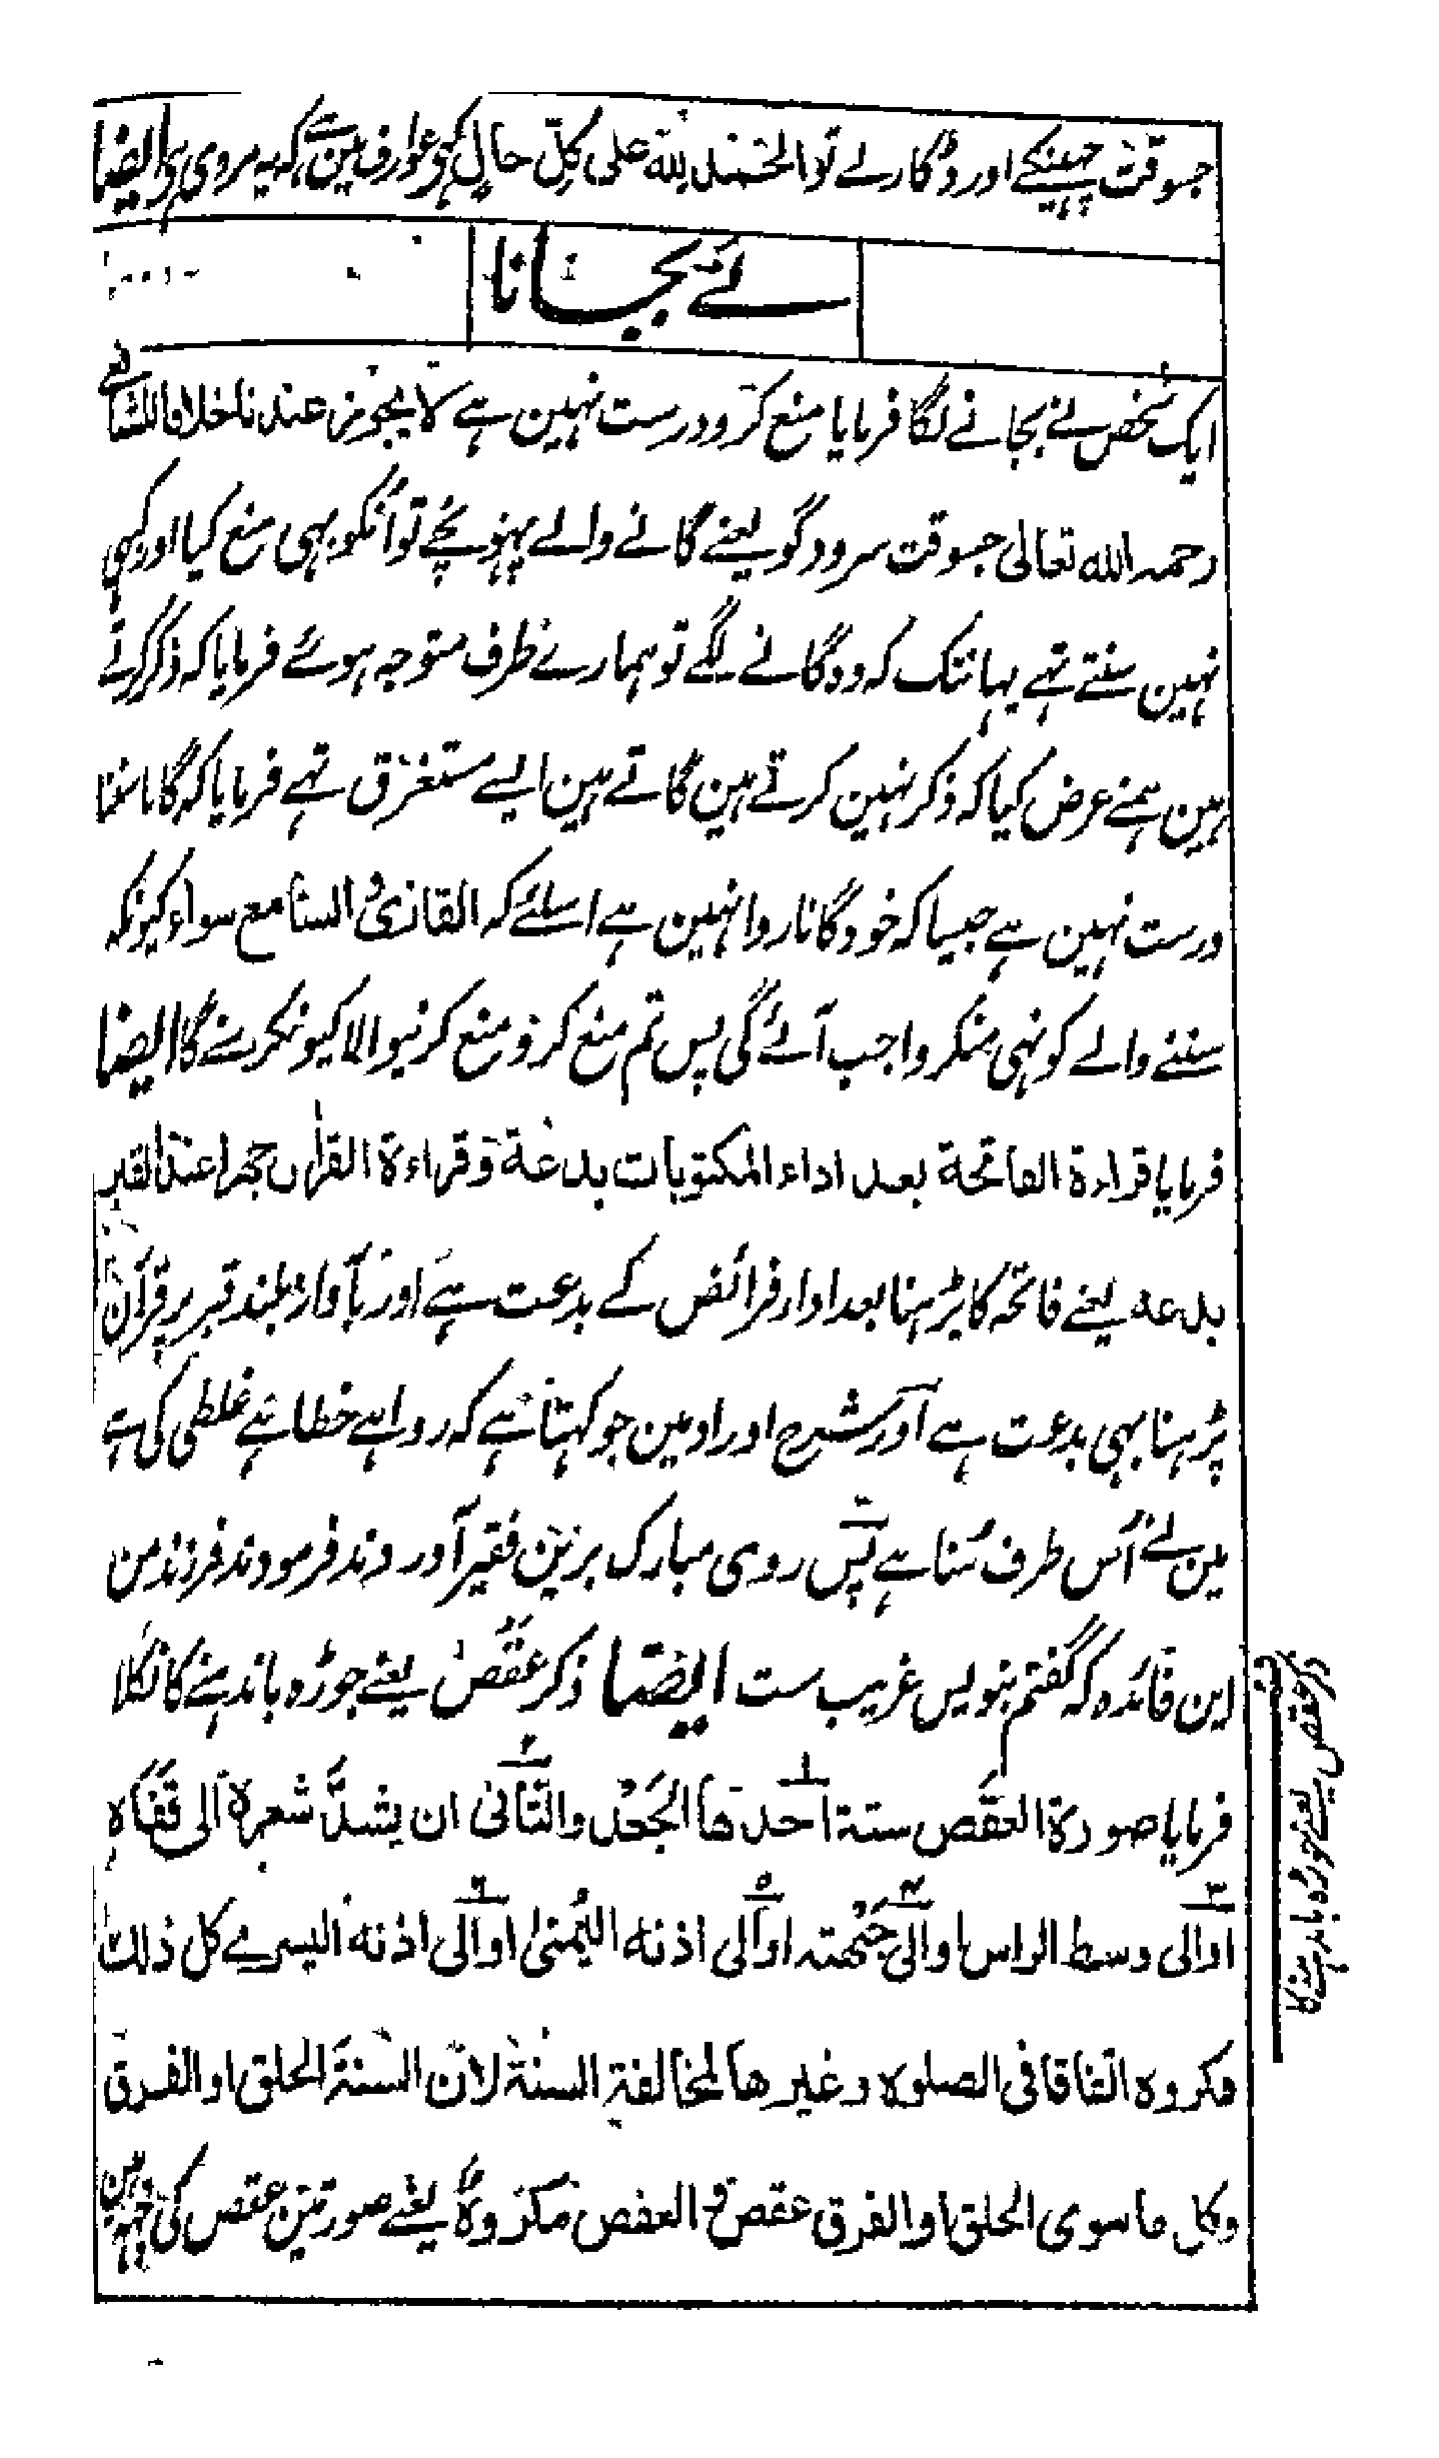 جسوقت چھینکے اور ڈکار لے تو الحمد لله علی کل حال کہی عوارف مین ہے کہ یہ مروی ہی ایضا
نے بجانا
ایک شخص نے بجانے لگا فرمایا منع کرو درست نہین ہے لا یجوز عندنا خلافا للشافعی
رحمہ الله تعالی جسوقت سرود گو یعنے گانے والے پہنوچے تو اُنکو بہی منع کیا اور کبہی
نہین سنتے تہے یہانتک کہ وہ گانے لگے تو ہمارے طرف متوجہ ہوئے فرمایا کہ ذکر کرتے
ہین ہمنے عرض کیا کہ ذکر نہین کرتے ہین گاتے ہین ایسے مستغرق تہے فرمایا کہ گانا سننا
درست نہین ہے جیسا کہ خود گانا روا نہین ہے اسلئے کہ القاری والسامع سواء کیونکہ
سننے والے کو نہی منکر واجب آئے گی پس تم منع کرو منع کرنیوالا کیونکر سنے گا ایضا
فرمایا قراءة الفاتحة بعد اداء المکتوبات بدعة وقراءة القراٰن جہرا عند القبر
بدعه یعنے فاتحہ کا پڑہنا بعد ادار فرائض کے بدعت ہے اور بآواز بلند قبر پر قرآن
پڑہنا بہی بدعت ہے اور شرح اوراد مین جو کہتا ہے کہ روا ہے خطا ہے غلطی کی ہے
مین نے اُس طرف سُنا ہے پس روی مبارک برین فقیر آوردند فرمودند فرزند من
این فائدہ کہ گفتم بنویس غریب ست ایضا ذکر عقص یعنے جوڑہ باندہنے کا نکلا
فرمایا صورة العقص ستة احدها الجعد والثانی ان یشدَّ شعرہ الی قفاہ
او الی وسط الراس او الی جبهته او الی اذنه الیُمنیٰ او الی اذنه الیسرے کل ذلك
مکروہ اتفاقا فی الصلوہ وغیرها لمخالفة السنة لان السنة الحلق او الفرق
وکل ما سوی الحلق او الفرق عقص و العقص مکروہ یعنے صورتین عقص کی چہہ ہین
ذکر عقص یعنے جوڑہ باندہنے کا